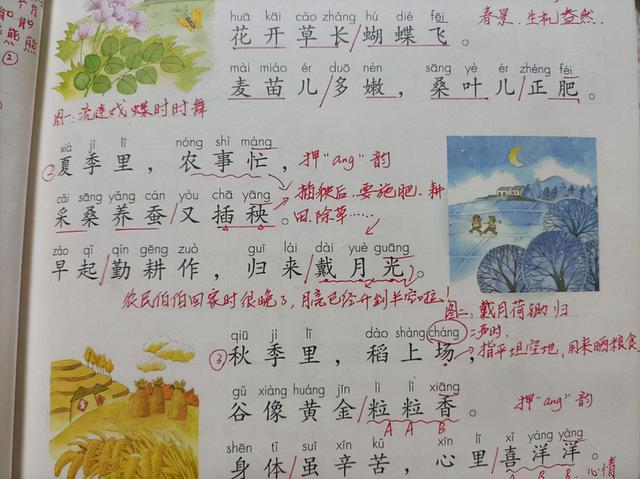 能熊
②
huā kāi cǎo zhǎng hú dié fēi
花开草长/蝴蝶飞。
春景.生机盎然.
mài miáo ér duō nèn sāng yè ér zhèng féi
麦苗儿/多嫩，桑叶儿/正肥。
图一:流连戏蝶时时舞
xià jì lǐ nóng shì máng
②夏季里，农事忙，押"ang"韵
cǎi sāng yǎng cán yòu chā yāng
采桑养蚕/又插秧。
插秧后.要施肥.耕
田.除草……
zǎo qǐ qín gēng zuò guī lái dài yuè guāng
早起/勤耕作，归来/戴月光。
农民伯伯回家时很晚了,月亮已经升到半空啦!
图二:戴月荷锄归
qiū jì lǐ dào shàng cháng
③秋季里，稻上场，
二声.
指平坦空地,用来晒粮食
gǔ xiàng huáng jīn lì lì xiāng
谷像黄金/粒粒香。
A A B
押"ang"韵
shēn tǐ suī xīn kǔ xīn lǐ xǐ yáng yáng
身体/虽辛苦，心里/喜洋洋。
A B B
心情